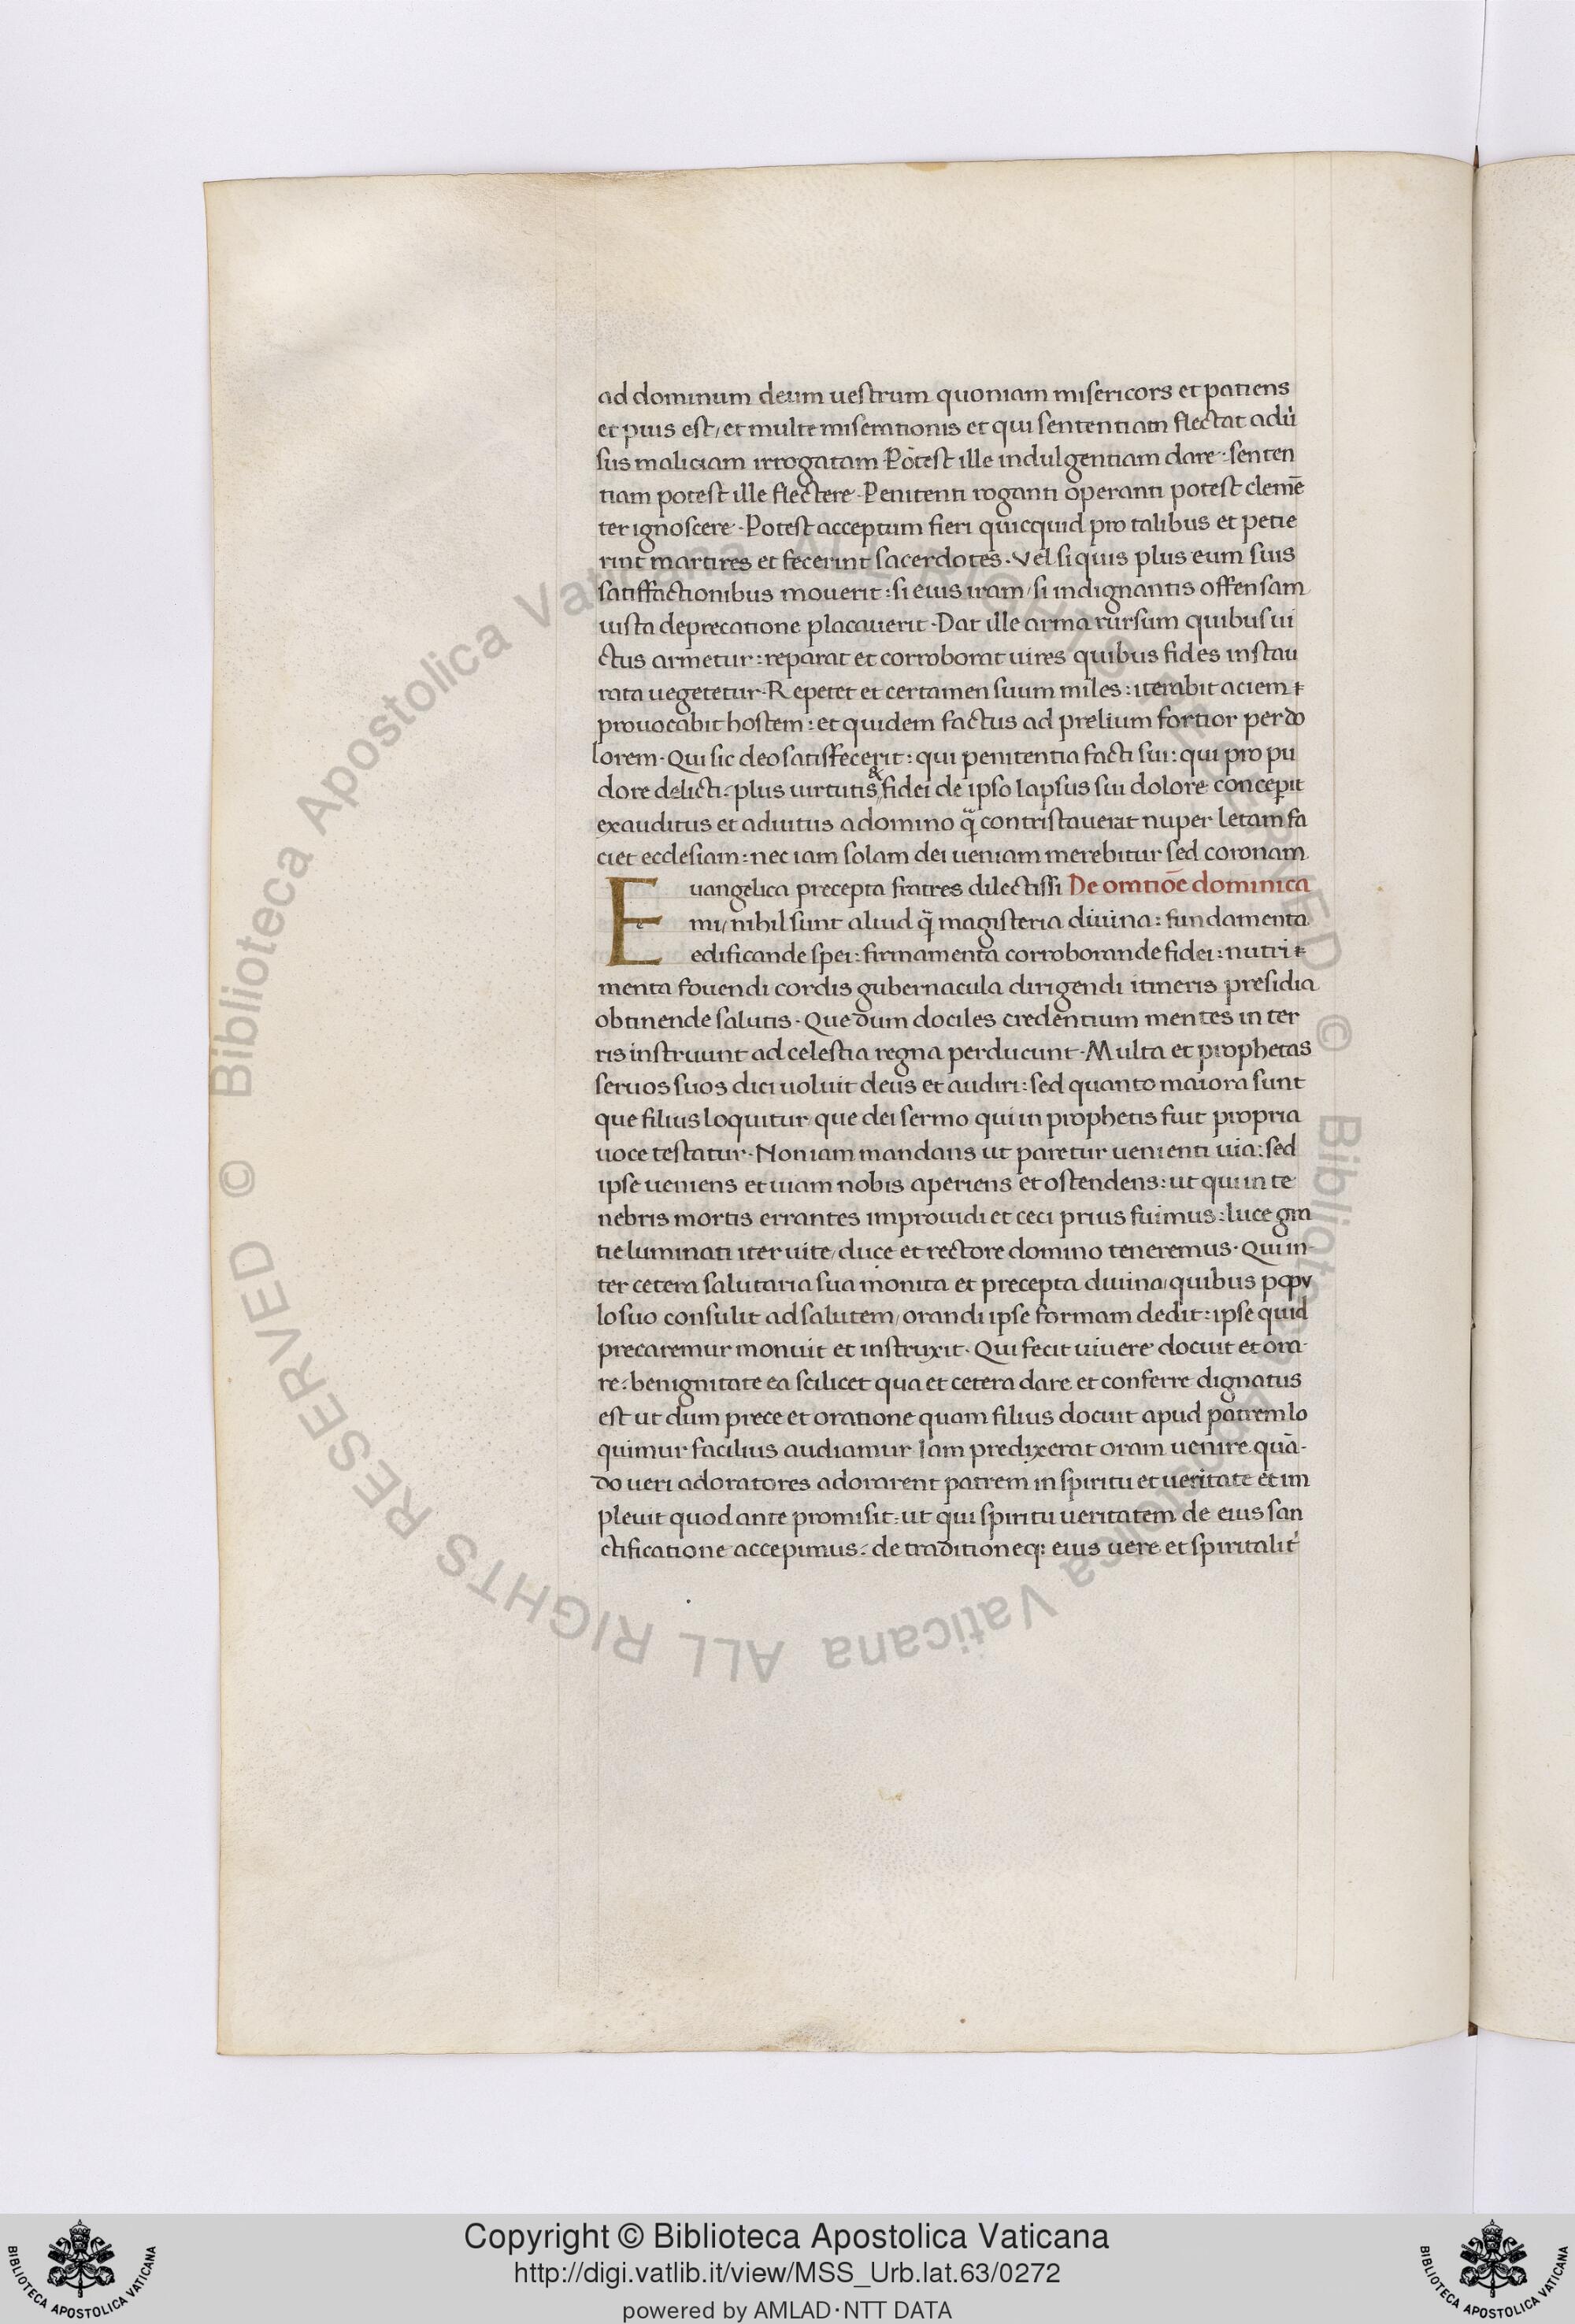 ad dominum deum uestrum quoniam misericors et patiens
et pius est, et multe miserationis et qui sententiam flectat adũ
sus maliciam irrogatam. Potest ille indulgentiam dare: senten
tiam potest ille flectere. Penitenti roganti operanti potest clemẽ
ter ignoscere. Potest acceptum fieri quicquid pro talibus et petie
rint martires et fecerint sacerdotes. Vel si quis plus eum suis
satisfactionibus mouerit: si eius iram, si indignantis offensam
iusta deprecatione placauerit. Dat ille arma rursum quibus ui
ctus armetur: reparat et corroborat uires quibus fides instau
rata uegetetur. Repetet et certamen suum miles: iterabit aciem ⁊
prouocabit hostem: et quidem factus ad prelium fortior per do
lorem. Qui sic deo satisfecerit: qui penitentia facti sui: qui pro pu
dore delicti: plus uirtutis & fidei de ipso lapsus sui dolore conceperit
exauditus et adiutus a domino q̃ contristauerat nuper letam fa
ciet ecclesiam: nec iam solam dei ueniam merebitur sed coronam
Euangelica precepta fratres dilectissi De oratiõe dominica
mi, nihil sunt aliud q̃ magisteria diuina: fundamenta
edificande spei: firmamenta corroborande fidei: nutri
menta fouendi cordis gubernacula dirigendi itineris presidia
obtinende salutis. Que dum dociles credentium mentes in ter
ris instruunt ad celestia regna perducunt. Multa et prophetas
seruos suos dici uoluit deus et audiri: sed quanto maiora sunt
que filius loquitur, que dei sermo qui in prophetis fuit propria
uoce testatur. Non iam mandans ut paretur uenienti uia: sed
ipse ueniens et uiam nobis aperiens et ostendens: ut qui in te
nebris mortis errantes improuidi et ceci prius fuimus: luce gra
tie luminati iter uite, duce et rectore domino teneremus. Qui in
ter cetera salutaria sua monita et precepta diuina, quibus popu
lo suo consulit ad salutem, orandi ipse formam dedit: ipse quid
precaremur monuit et instruxit. Qui fecit uiuere docuit et ora
re: benignitate ea scilicet qua et cetera dare et conferre dignatus
est ut dum prece et oratione quam filius docuit apud patrem lo
quimur facilius audiamur. Iam predixerat oram uenire quã-
do ueri adoratores adorarent patrem in spiritu et ueritate et im
pleuit quod ante promisit: ut qui spiritu ueritatem de eius san
ctificatione accepimus: de traditioneq: eius uere et spiritalit̃
© Biblioteca Apostolica Vaticana ALL RIGHTS RESERVED © Biblioteca Apostolica Vaticana ALL RIGHTS RESERVED
Copyright © Biblioteca Apostolica Vaticana
http://digi.vatlib.it/view/MSS_Urb.lat.63/0272
powered by AMLAD·NTT DATA
BIBLIOTECA APOSTOLICA VATICANA
BIBLIOTECA APOSTOLICA VATICANA